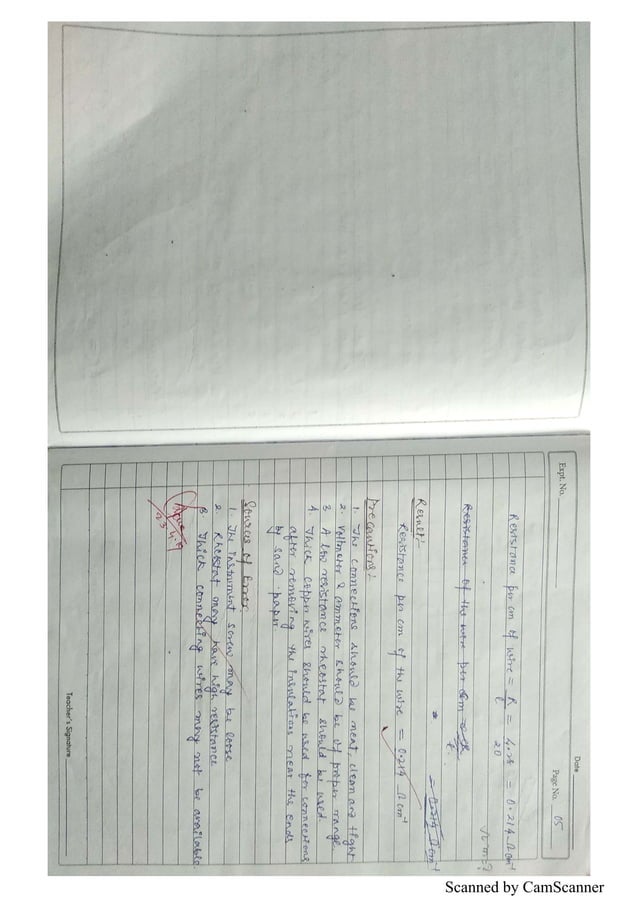 Expt. No.
Date
Page No. 05
Resistance per cm of wire = R/l = 4.28/20 = 0.214 Ω cm⁻¹
Resistance of the wire per cm = R/l
= 0.214 Ω cm⁻¹
Result:-
Resistance per cm of the wire = 0.214 Ω cm⁻¹
Precautions:-
1. The connections should be neat, clean and tight
2. Voltmeter & ammeter should be of proper range
3 A low resistance rheostat should be used.
4. Thick copper wires should be used for connections
after removing the insulations near the ends
by sand paper
Sources of Error
1. The instrument screw may be loose
2. Rheostat may have high resistance
3 Thick connecting wires may not be available.
Teacher's Signature
Scanned by CamScanner